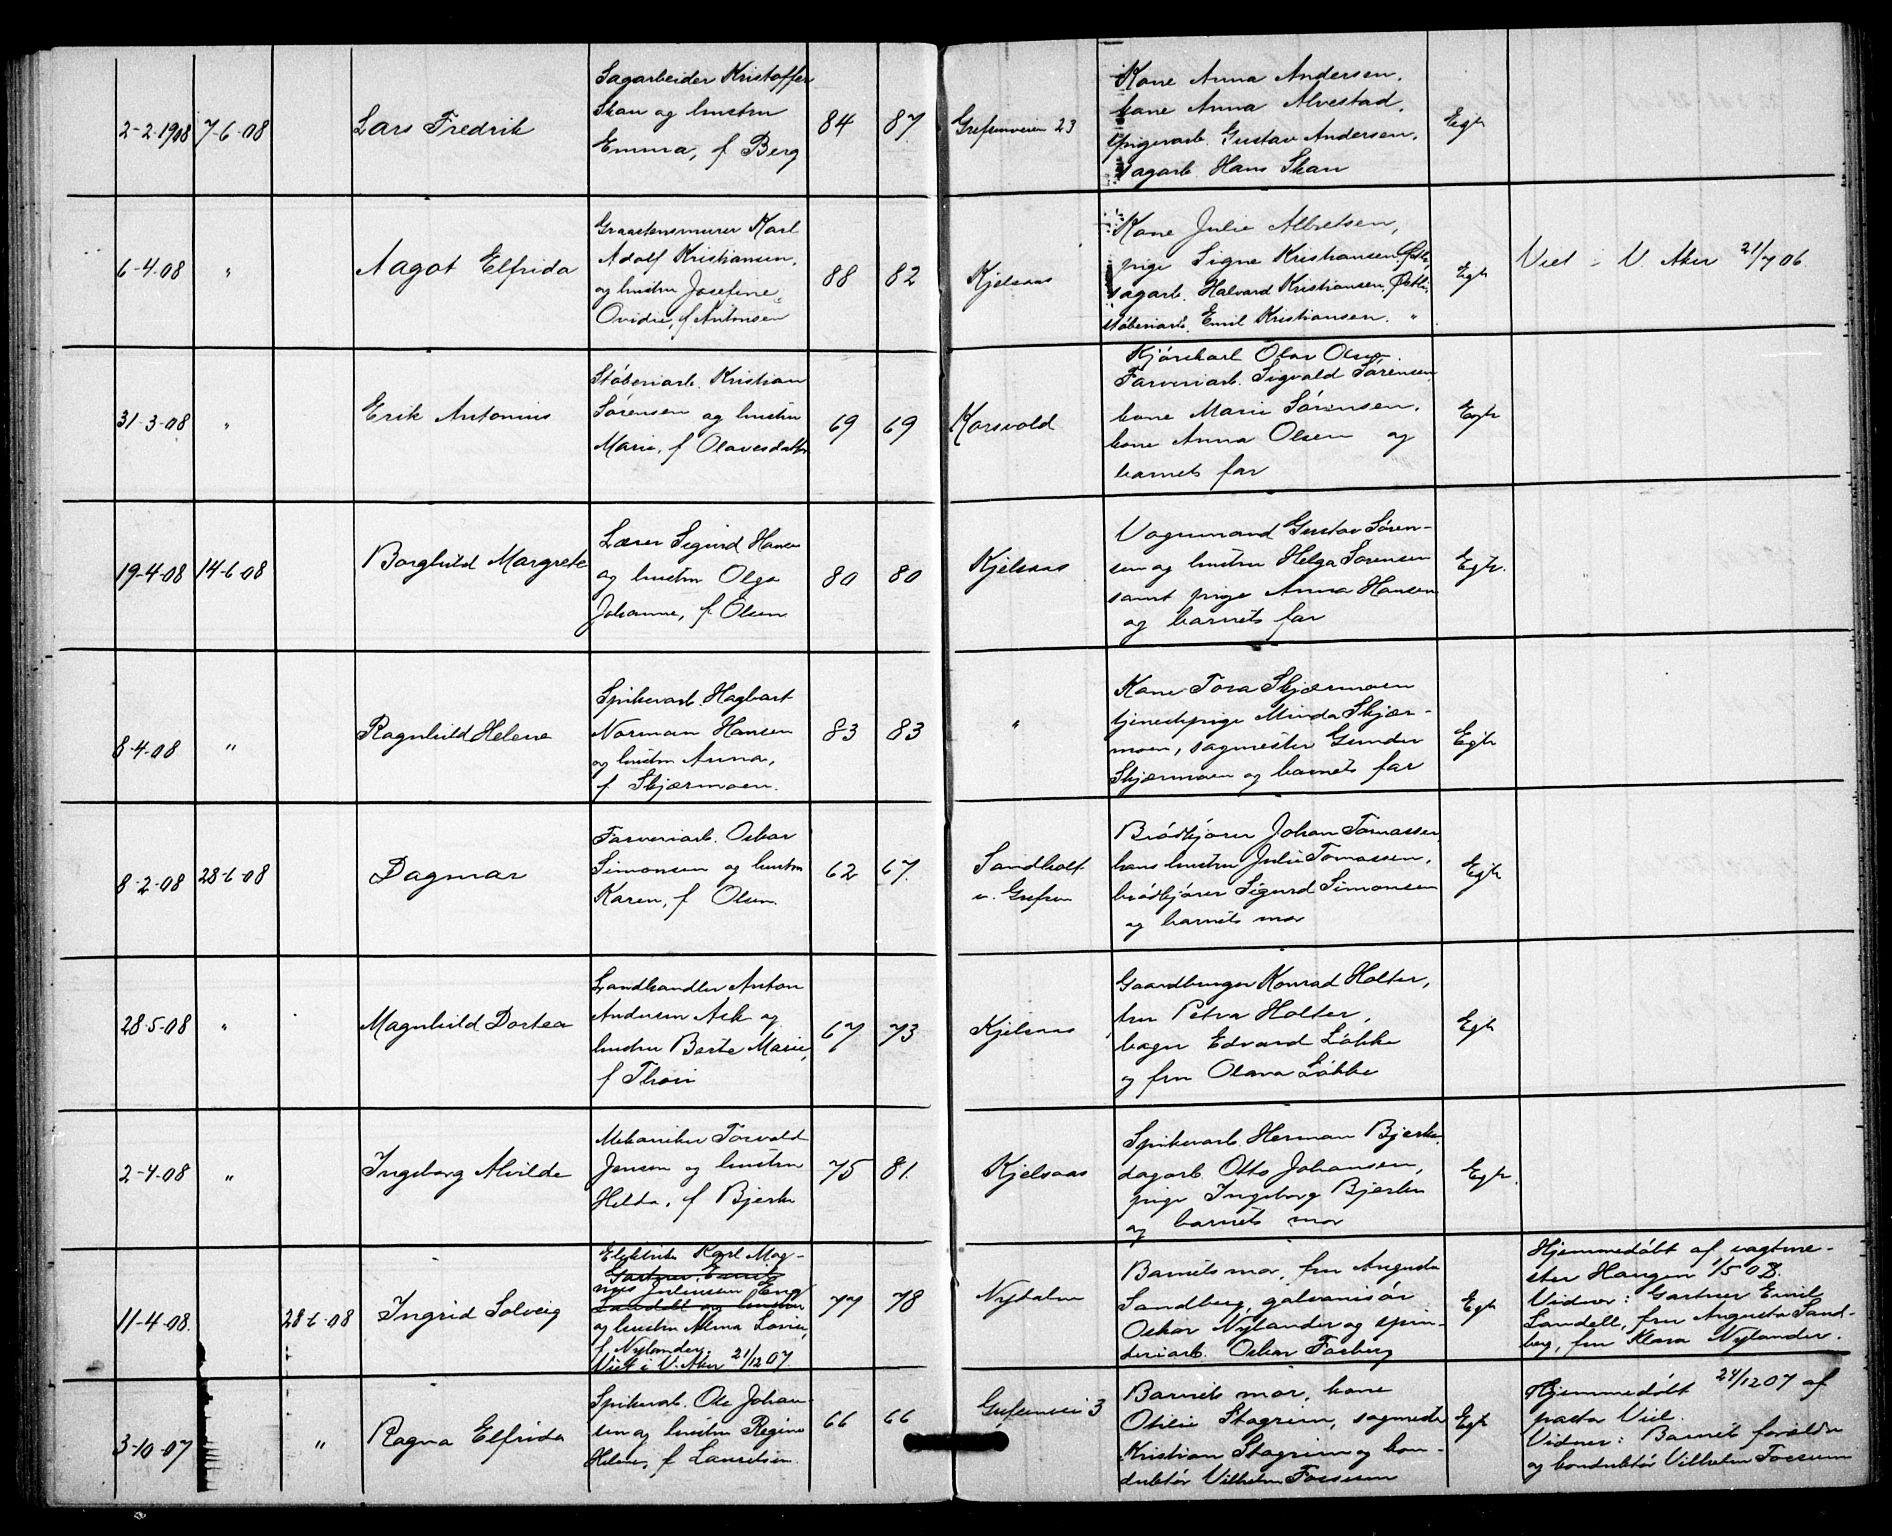 2-2-1908 7-6-08 Lars Fredrik
Sagarbeider Kristoffer
Skau og hustru
Emma, f Berg
84 87. Grefsenveien 23
Kone Anna Andersen,
kone Anna Alvestad,
spigerarb. Gustav Andersen,
sagarb. Hans Skau
Egte
6-4-08 " Aagot Elfrida
Graastensmurer Karl
Adolf Kristiansen,
og hustru Josefine
Ovidie, f Antonsen
88 82 Kjelsaas
Kone Julie Albretsen,
pige Signe Kristiansen,
sagarb. Halvard Kristiansen,
støberiarb. Emil Kristiansen. "
Egte
Viet i V. Aker 21/7 06
31-3-08 " Erik Antonius
Støberiarb. Kristian
Sørensen og hustru
Marie, f Olavesdatter
69 69 Korsvold
Kjørekarl Olav Olsen.
Farveriarb. Sigvald Sørensen,
kone Marie Sørensen,
kone Anna Olsen og
barnets far
Egte
19-4-08 14-6-08 Borghild Margrete
Lærer Sigurd Hansen
og hustru Olga
Johanne, f. Olsen
80 80 Kjelsaas
Vognmand Gustav Søren-
sen og hustru Helga Sørensen
samt pige Anna Hansen
og barnets far
Egte.
8-4-08 " Ragnhild Helene
Spikerarb. Hagbart
Norman Hansen
og hustru Anna,
f Skjærmoen.
83 83 "
Kone Tora Skjærmoen
tjenestepige Minda Skjær-
moen, sagmester Gunder
Skjærmoen og barnets far
Egte
8-2-08 28-6-08 Dagmar
Farveriarb. Oskar
Simonsen og hustru
Karen, f Olsen.
62 67. Sandholt
v. Grefsen
Brødkjører Johan Tomassen,
hans hustru Julie Tomassen,
brødkjører Sigurd Simonsen
og barnets mor
Egte
28-5-08 " Magnhild Dortea
Landhandler Anton
Andersen Ask og
hustru Berte Marie,
f Thori
67 73. Kjelsaas
Gaardbruger Konrad Holter,
fru Petra Holter,
bager Edvard Løkke
og fru Olava Løkke
Egte
2-4-08 " Ingeborg Alvilde
Mekaniker Torvald
Jensen og hustru
Hilda, f Bjerke
75 81. Kjelsaas
Spikerarb. Herman Bjerke,
dagarb. Otto Johansen,
pige Ingeborg Bjerke
og barnets mor
Egte.
11-4-08. 28-6-08 Ingrid Solveig
Elektrik. Karl Mag-
Gartner Emil
nus Juliussen Eng
Landell og hustru
og hustru Alma Lovise,
f. Nylander.
Viet i V. Aker 21/12 07.
77 78 Nydalen
Barnets mor, fru Augusta
Sandberg, galvanisør
Oskar Nylander og spin-
deriarb. Oskar Fosberg
Egte
Hjemmedøbt af vagtme-
ster Haugen 1/5 08.
Vidner: Gartner Emil
Landell, fru Augusta Sand-
berg, fru Klara Nylander.
3-10-07 " Ragna Elfrida
Spikerarb. Ole Johan-
sen og hustru Regine
Helene, f Lauritsen.
66 66 Grefsenvei 3
Barnets mor, kone
Otilie Stagrim, sagmester
Kristian Stagrim og kon-
duktør Vilhelm Fossum
Egte
Hjemmedøbt 24/12 07 af
pastor Viel.
Vidner: Barnets forældre
og konduktør Vilhelm Fossum